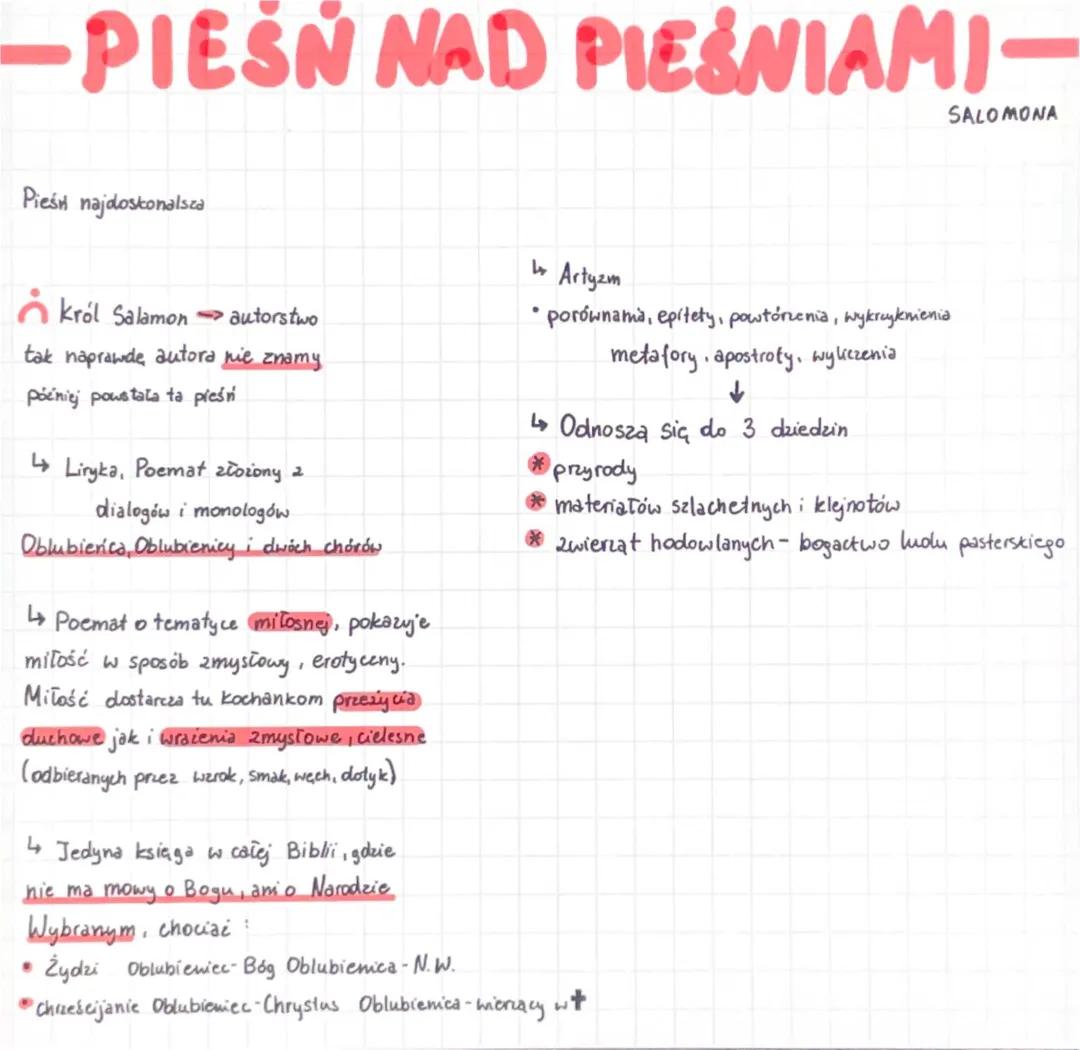 PIEŚŃ NAD PIEŚNIAMI
SALOMONA
Pieśń najdoskonalsza
król Salamon → autorstwo
tak naprawdę autora nie znamy
później powstała ta pieśń
↳ Liryka, Poemat złożony z
dialogów i monologów
Oblubieńca, Oblubienicy i dwóch chórów
↳ Poemat o tematyce miłosnej, pokazuje
miłość w sposób zmysłowy, erotyczny.
Miłość dostarcza tu kochankom przeżycia
duchowe jak i wrażenia zmysłowe, cielesne
(odbieranych przez wzrok, smak, węch, dotyk)
↳ Jedyna księga w całej Biblii, gdzie
nie ma mowy o Bogu, ani o Narodzie
Wybranym, chociaż :
• Żydzi Oblubieniec - Bóg Oblubienica - N.W.
• Chrześcijanie Oblubieniec - Chrystus Oblubienica - wierzący w ✝
↳ Artyzm
• porównania, epitety, powtórzenia, wykrzyknienia
metafory, apostrofy, wyliczenia
↓
↳ Odnoszą się do 3 dziedzin
* przyrody
* materiałów szlachetnych i klejnotów
* zwierząt hodowlanych - bogactwo ludu pasterskiego